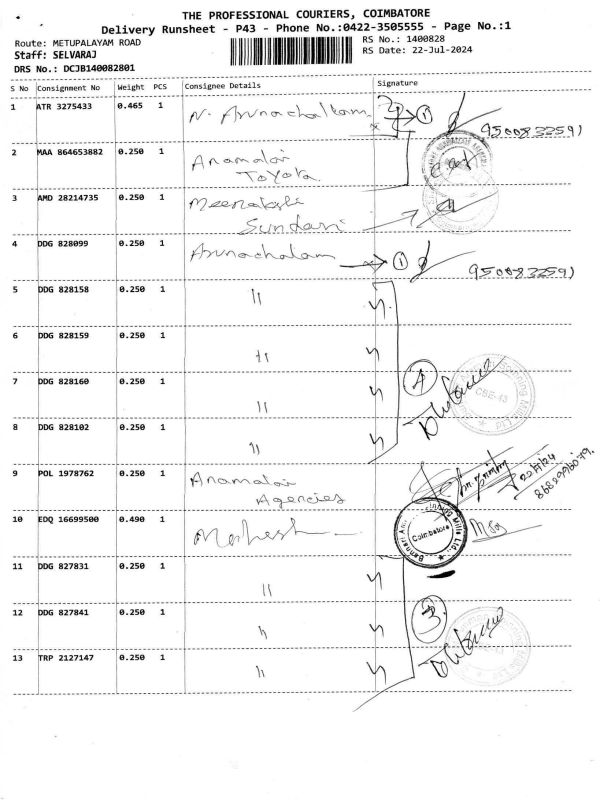 THE PROFESSIONAL COURIERS, COIMBATORE
Delivery Runsheet - P43 - Phone No.:0422-3505555 - Page No.:1
Route: METUPALAYAM ROAD
RS No.: 1400828
Staff: SELVARAJ
RS Date: 22-Jul-2024
DRS No.: DCJB140082801
S No Consignment No Weight PCS Consignee Details Signature
1 ATR 3275433 0.465 1 N. Arunachalam 1
9500832591
2 MAA 864653882 0.250 1 Anamalai
Toyota
3 AMD 28214735 0.250 1 Meenakshi
Sundari
4 DDG 828099 0.250 1 Arunachalam 1
9500832591
5 DDG 828158 0.250 1 "
6 DDG 828159 0.250 1 "
7 DDG 828160 0.250 1 " 4
CBE-43
8 DDG 828102 0.250 1 "
9 POL 1978762 0.250 1 Anamalai
Agencies
22/7/24
10 EDQ 16699500 0.490 1 Mahesh
Bannari Mills Ltd.,
Coimbatore
11 DDG 827831 0.250 1 "
12 DDG 827841 0.250 1 " 3
13 TRP 2127147 0.250 1 "